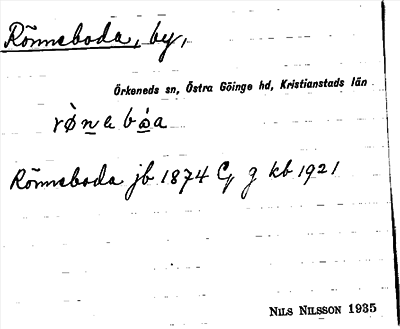 Rönneboda, by,
Örkeneds sn, Östra Göinge hd, Kristianstads län
Rönneboda jb 1874 g kb 1921
NILS NILSSON 1935